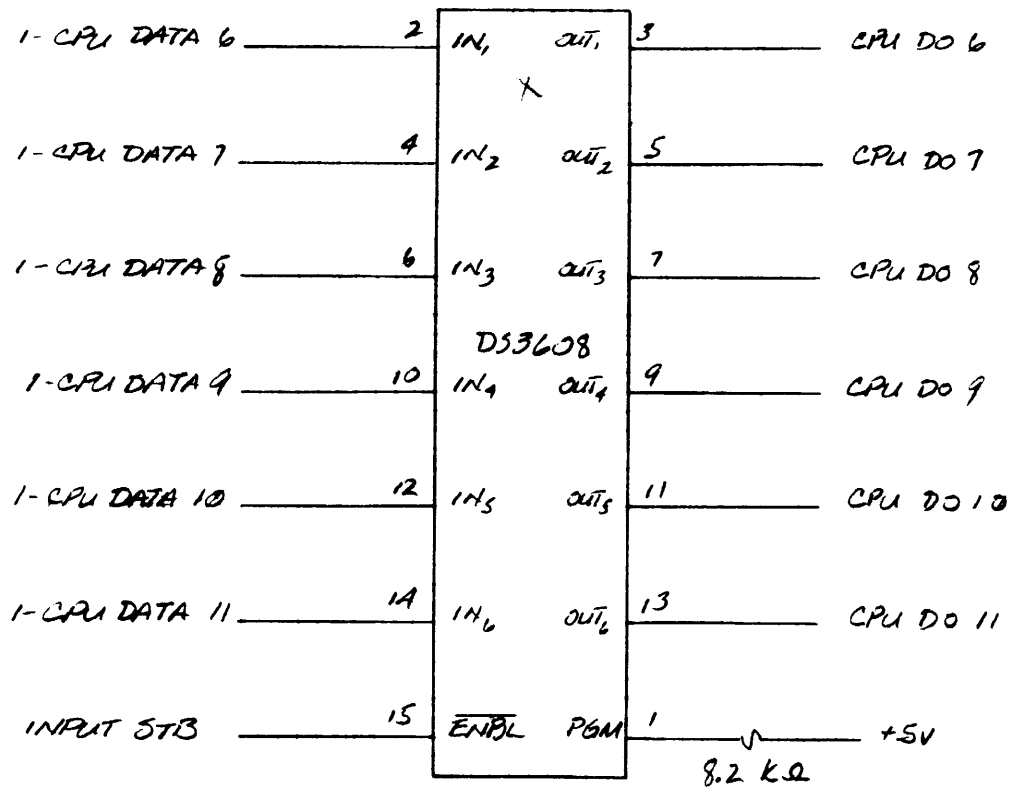 1-CPU DATA 6 2 IN1 OUT1 3 CPU DO 6
X
1-CPU DATA 7 4 IN2 OUT2 5 CPU DO 7
1-CPU DATA 8 6 IN3 OUT3 7 CPU DO 8
DS3608
1-CPU DATA 9 10 IN4 OUT4 9 CPU DO 9
1-CPU DATA 10 12 IN5 OUT5 11 CPU DO 10
1-CPU DATA 11 14 IN6 OUT6 13 CPU DO 11
INPUT STB 15 ENBL PGM 1 +5V
8.2 KΩ